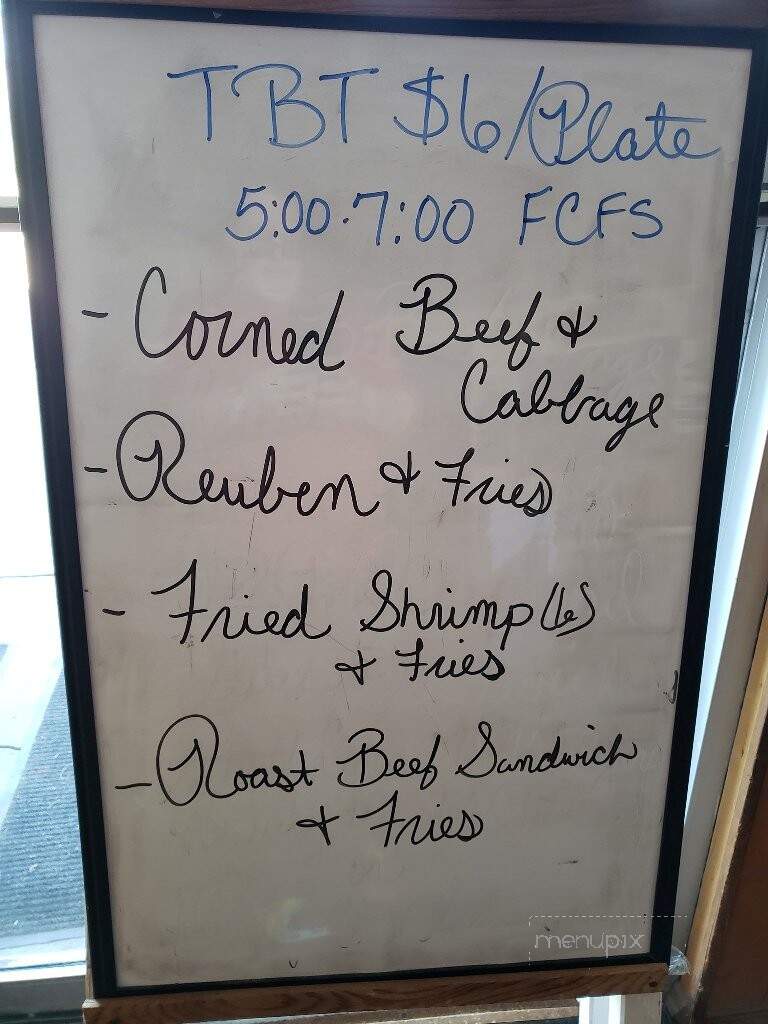 TBT $6/Plate
5:00-7:00 FCFS
- Corned Beef &
Cabbage
- Reuben & Fries
- Fried Shrimp (6)
& Fries
- Roast Beef Sandwich
& Fries
menupix